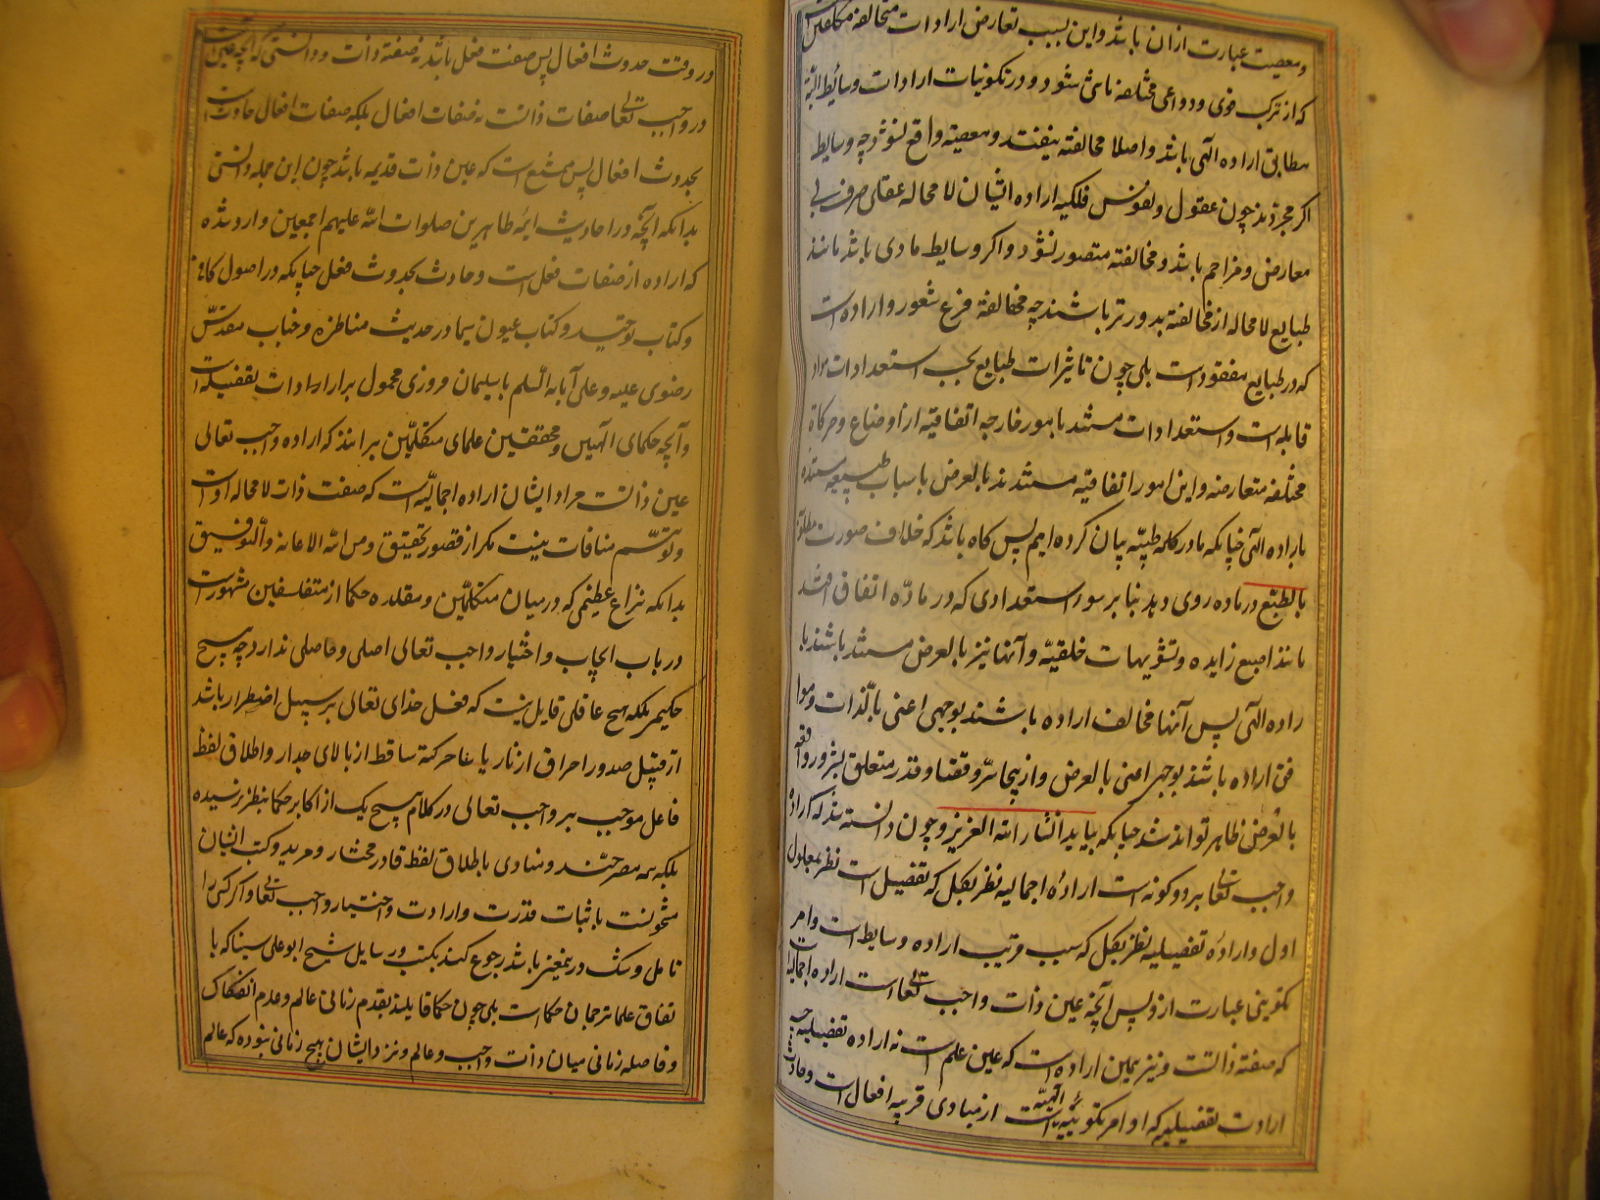 و معصیت عبارت ازان باشد و این بسبب تعارض ارادات متخالفه مکلفین
که از ترکب قوی و دواعی مختلفه ناشی شود و در تکوینیات ارادات وسائط البتّه
مطابق اراده الهی باشد و اصلا مخالفته نیفتد و معصیته واقع نشود چه وسایط
اکر مجرّدند چون عقول و نفوس فلکیه اراده ایشان لا محاله عقلی صرف بی
معارض و مزاحم باشد و مخالفته متصور نشود و اکر وسایط مادی باشد مانند
طبایع لا محاله از مخالفته بدورتر باشند چه مخالفته فرع شعور و اراده است
که در طبایع مفقود است بلی چون تاثیرات طبایع بحسب استعدادات مواد
قابله است و استعدادات مستند بامور خارجه اتفاقیه از اوضاع و حرکاة
مختلفه متعارضه و این امور اتفاقیه مستندند بالعرض باسباب طبیعیه مستنده
باراده الهی چنانکه ما در کلمه طیّبه بیان کرده ایم پس کاه باشد که خلاف صورت مطلوبه
بالطّبع در ماده روی دهد بنا بر سوء استعدادی که در مادّه اتفاق افتد
مانند اصبع زایده و تشویهات خلقیّه و آنها نیز بالعرض مستند باشند با
راده الهی پس آنها مخالف اراده باشند بوجهی اعنی بالذات و موا
فق اراده باشند بوجهی اعنی بالعرض و از پنجا سرّ و قضا و قدر متعلق بشرور واقعه
بالعرض ظاهر تواند شد چنانکه بیاید انشاء الله العزیز و چون دانسته شد که اراده
واجب تعالی بر دو کونه است ارادهٔ اجمالیه نظر بکل که تفصیل است نظر بمعلول
اول و ارادهٔ تفصیلیه نظر بکل که سبب قریب اراده وسایط است و امر
تکوینی عبارت ازو پس آنچه عین ذات واجب تعالی است اراده اجمالیه است
که صفته ذاتست و نیز همین اراده است که عین علم است نه اراده تفصیلیه چه
ارادت تفصیلیه که اوامر تکوینیّه الهیّه است از مبادی قریبه افعال است و حادث
در وقت حدوث افعال پس صفت فعل باشد نه صفته ذات و دانستی که آنچه عین ذات
در واجب تعالی صفات ذاتست نه صفات افعال بلکه صفات افعال حادث است
بحدوث افعال پس ممتنع است که عین ذات قدیمه باشد چون این جمله دانستی
بدانکه آنچه در احادیث ائمه طاهرین صلوات الله علیهم اجمعین وارد شده
که اراده از صفات فعل است و حادث بحدوث فعل چنانکه در اصول کافی
و کتاب توحید و کتاب عیون سیما در حدیث مناظره و جناب مقدّس
رضوی علیه و علی آبایه السلم با سلیمان مروزی محمول بر ارادات تفصیلیه است
و آنچه حکمای الهیین و محققین علمای متکلّمین برانند که اراده واجب تعالی
عین ذاتست مراد ایشان اراده اجمالیّه است که صفت ذات لا محاله اوست
و توهّم منافات نیست مکر از قصور تحقیق و من الله الاعانه والتوفیق
بدانکه نزاع عظیمی که در میان متکلّمین و مقلده حکما از متفلسفین مشهورست
در باب ایجاب و اختیار واجب تعالی اصلی و حاصلی ندارد چه هیچ
حکیمی بلکه هیچ عاقلی قایل نیست که فعل خدای تعالی بر سبیل اضطرار باشد
از قبیل صدور احراق از نار یا عا حرکته ساقط از بالای جدار و اطلاق لفظ
فاعل موجب بر واجب تعالی در کلام هیچ یک از اکابر حکما بنظر نرسیده
بلکه همه مصرحند و منادی باطلاق لفظ قادر مختار و مرید و کتب ایشان
مشحونست باثبات قدرت و ارادت و اختیار واجب تعالی و اکر کسی را
تامل و شک در نیمعنی باشد رجوع کند بکتب و رسایل شیخ ابو علی سینا که با
تفاق علما ترجمان حکماست بلی چون حکما قایلند بقدم زمانی عالم و عدم انفکاک
و فاصله زمانی میان ذات واجب و عالم و نزد ایشان هیچ زمانی نبوده که عالم